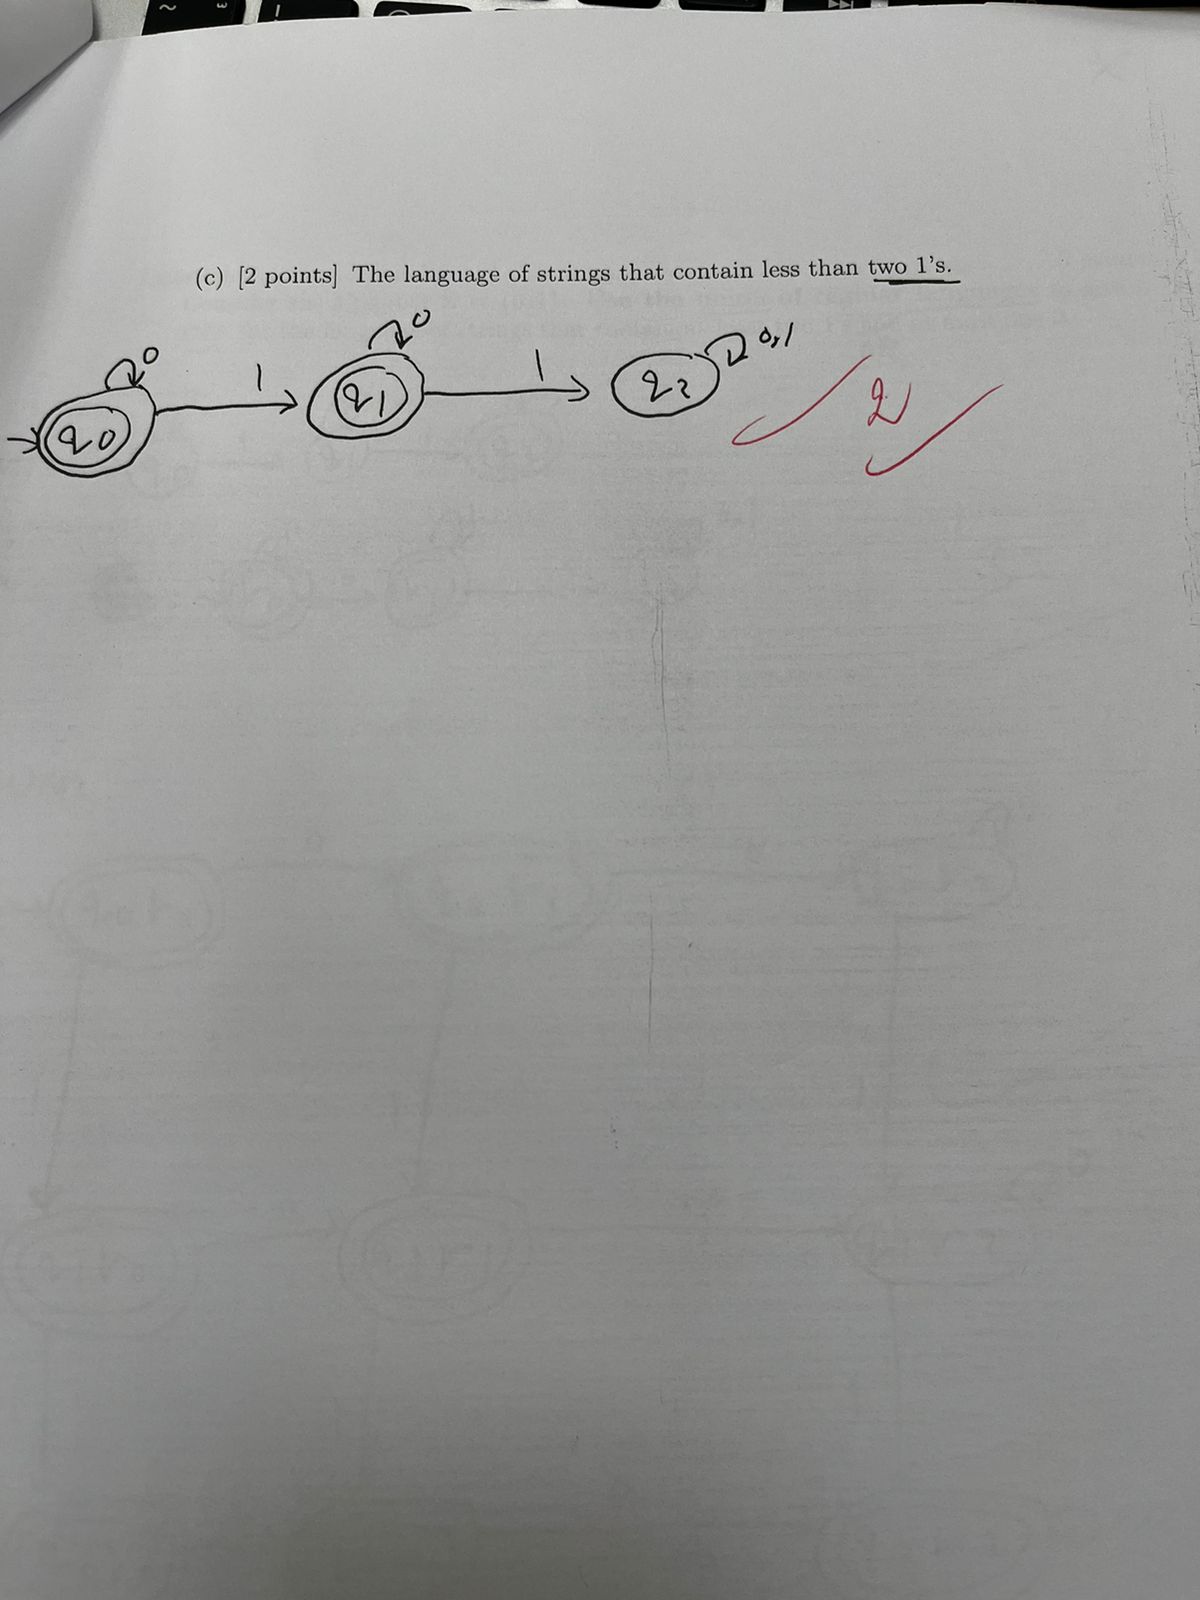 (c) [2 points] The language of strings that contain less than two 1's.
0 0 0,1
1 1
q0 q1 q2
2